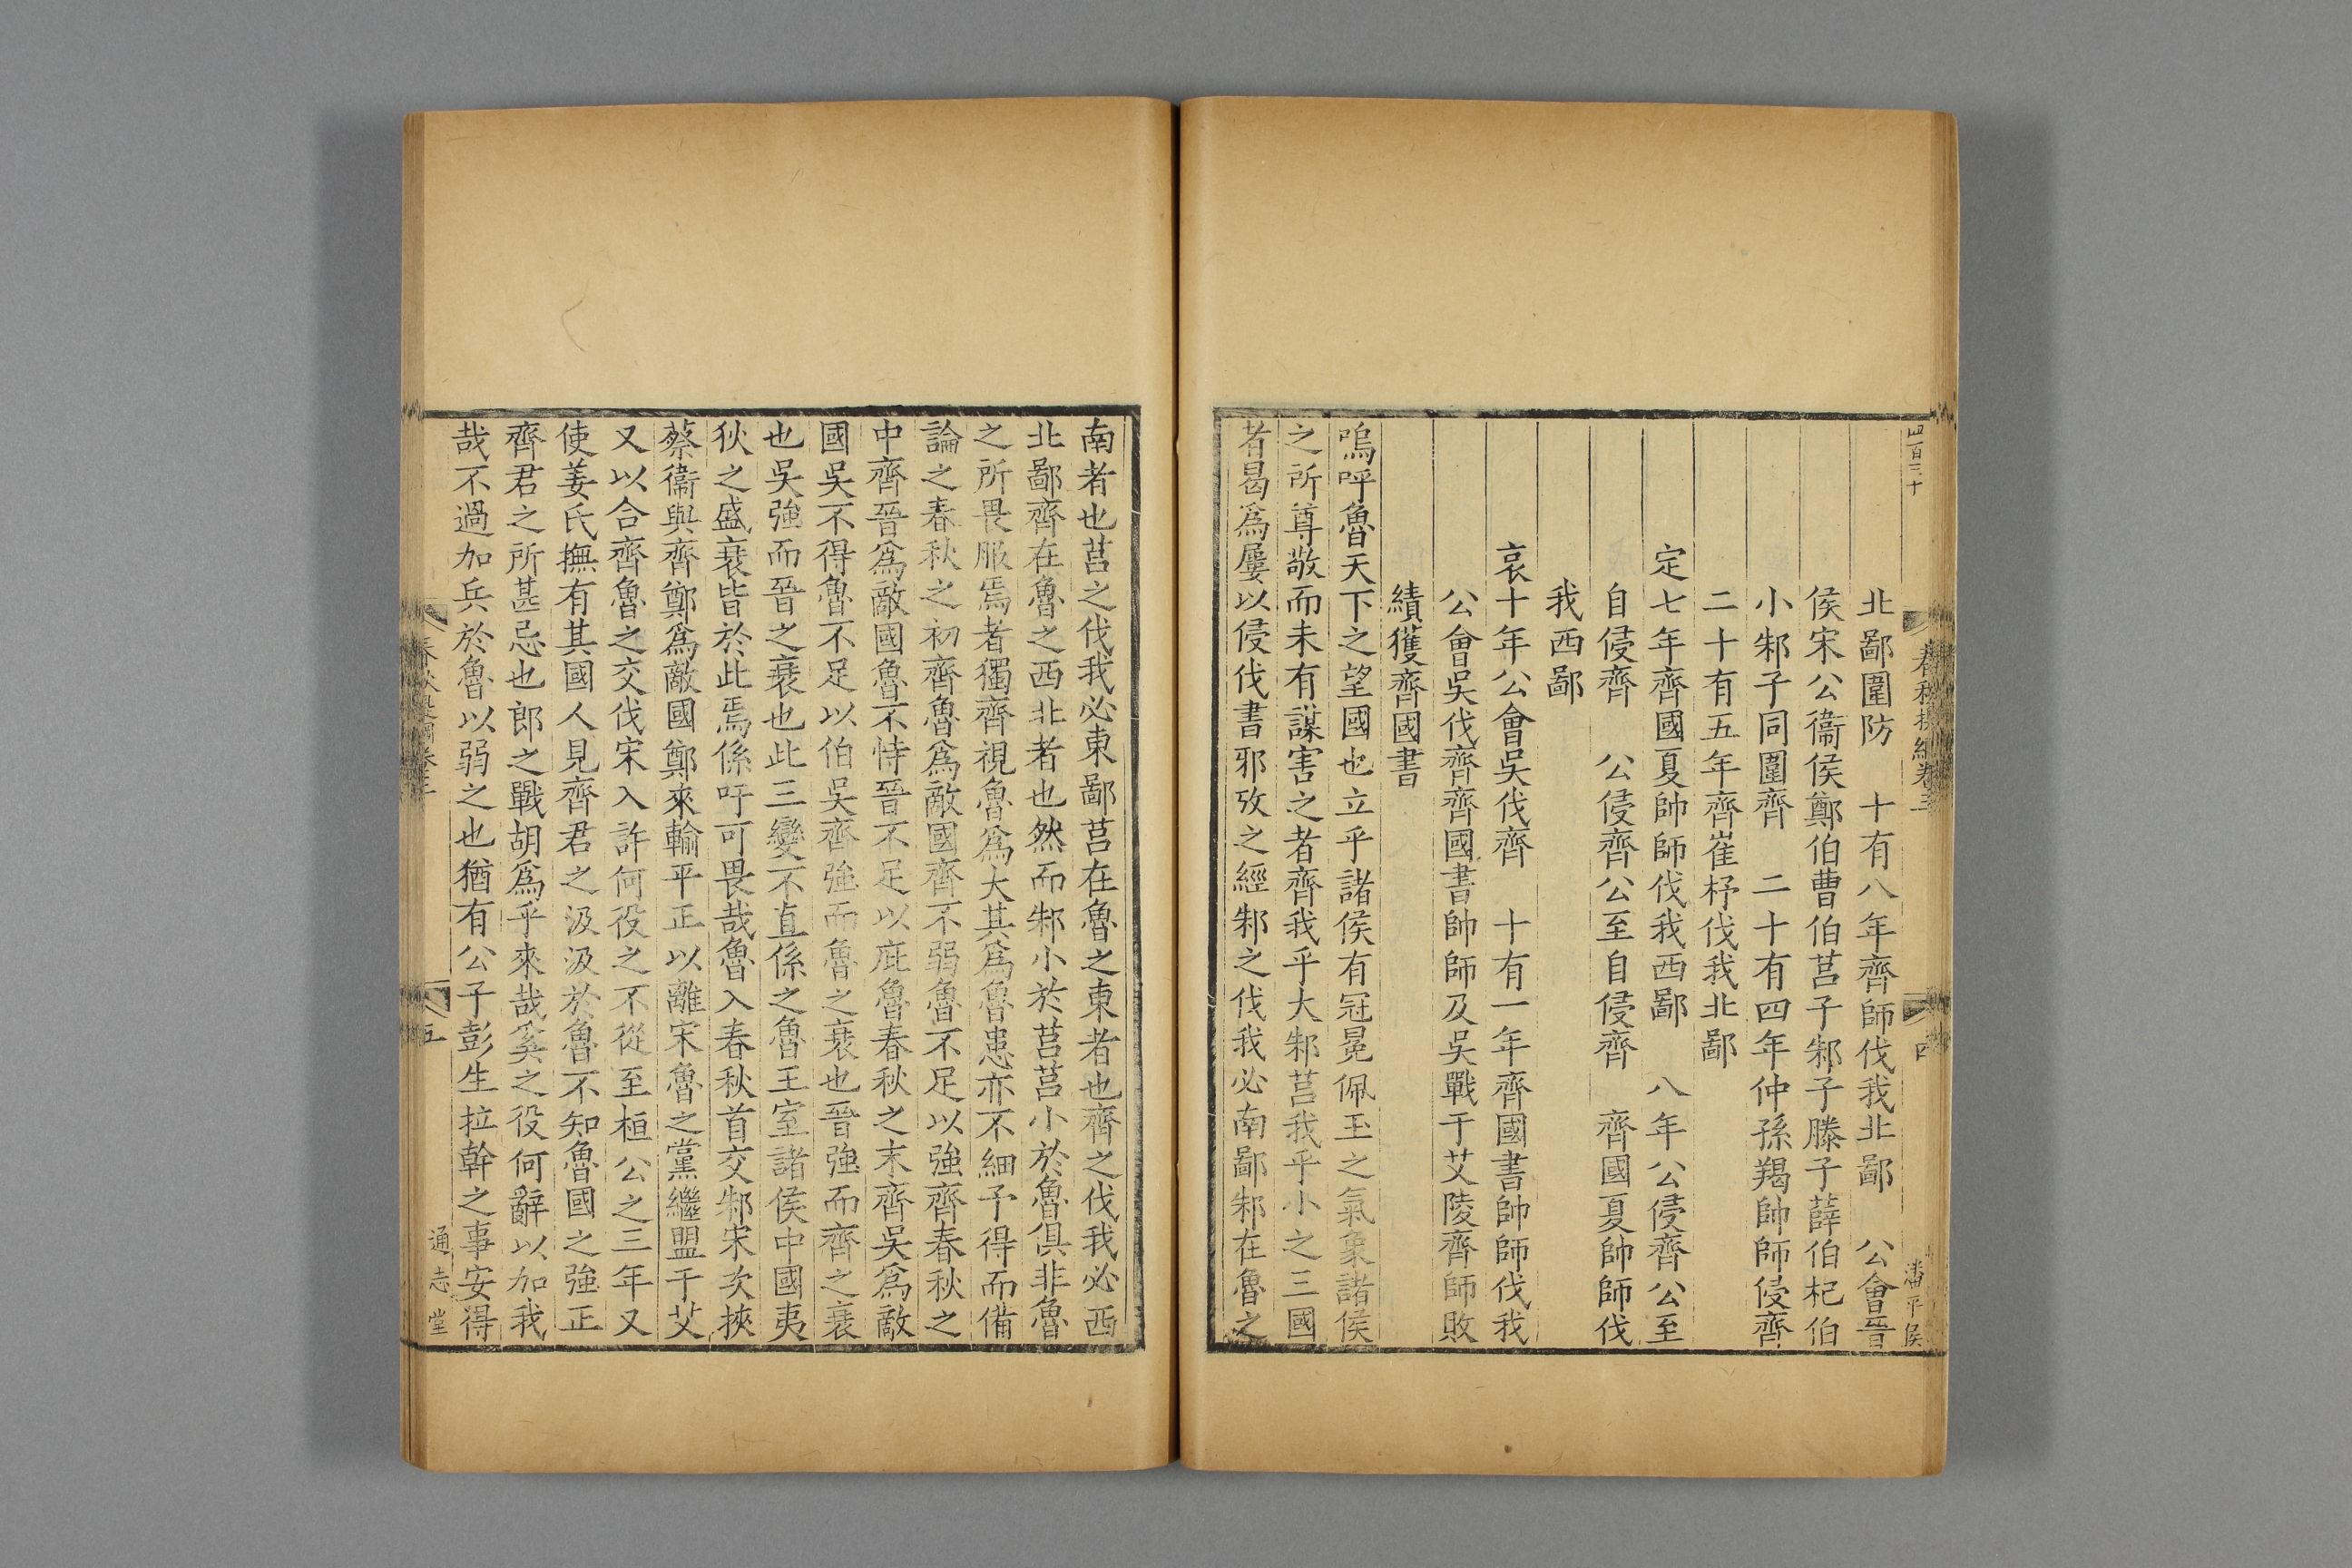 四百三十
春秋提綱卷三
四
潘平侯
北鄙圍防　十有八年齊師伐我北鄙　公會晉
侯宋公衞侯鄭伯曹伯莒子邾子滕子薛伯杞伯
小邾子同圍齊　二十有四年仲孫羯帥師侵齊
二十有五年齊崔杼伐我北鄙
定七年齊國夏帥師伐我西鄙　八年公侵齊公至
自侵齊　公侵齊公至自侵齊　齊國夏帥師伐
我西鄙
哀十年公會吳伐齊　十有一年齊國書帥師伐我
公會吳伐齊齊國書帥師及吳戰于艾陵齊師敗
績獲齊國書
嗚呼魯天下之望國也立乎諸侯有冠冕佩玉之氣象諸侯
之所尊敬而未有謀害之者齊我乎大邾莒我乎小之三國
者曷爲屢以侵伐書邪攷之經邾之伐我必南鄙邾在魯之
南者也莒之伐我必東鄙莒在魯之東者也齊之伐我必西
北鄙齊在魯之西北者也然而邾小於莒莒小於魯俱非魯
之所畏服焉者獨齊視魯爲大其爲魯患亦不細予得而備
論之春秋之初齊魯爲敵國齊不弱魯不足以強齊春秋之
中齊晉爲敵國魯不恃晉不足以庇魯春秋之末齊吳爲敵
國吳不得魯不足以伯吳齊強而魯之衰也晉強而齊之衰
也吳強而晉之衰也此三變不直係之魯王室諸侯中國夷
狄之盛衰皆於此焉係吁可畏哉魯入春秋首交邾宋次挾
蔡衞與齊鄭爲敵國鄭來輸平正以離宋魯之黨繼盟于艾
又以合齊魯之交伐宋入許何役之不從至桓公之三年又
使姜氏撫有其國人見齊君之汲汲於魯不知魯國之強正
齊君之所甚忌也郎之戰胡爲乎來哉奚之役何辭以加我
哉不過加兵於魯以弱之也猶有公子彭生拉幹之事安得
春秋提綱卷三
五
通志堂